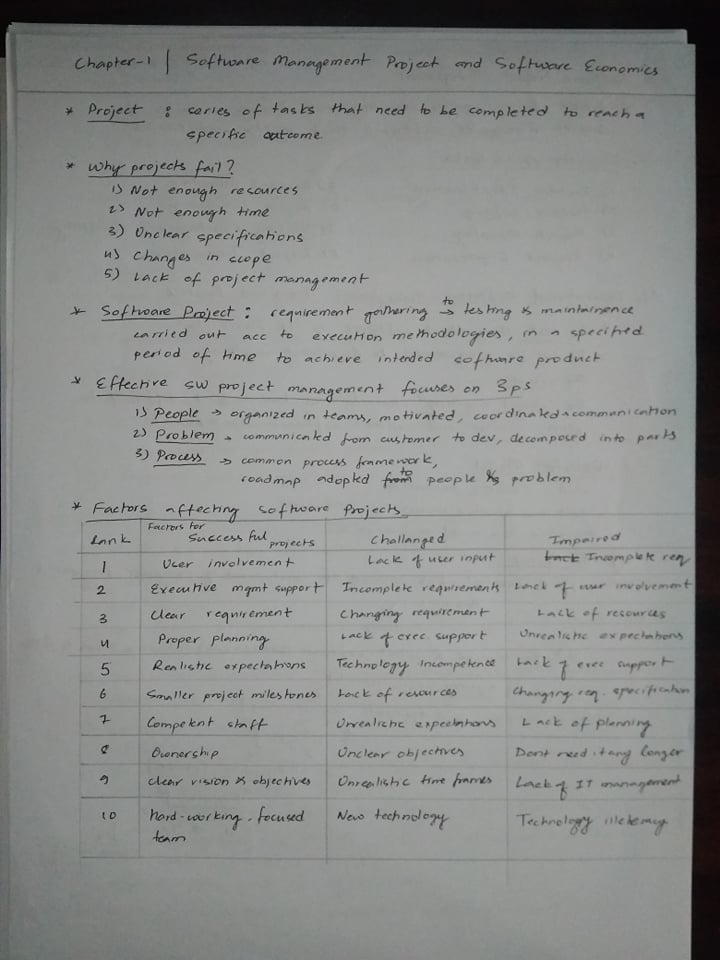 Chapter-1 | Software Management Project and Software Economics
* Project : series of tasks that need to be completed to reach a
specific outcome
* Why projects fail?
1) Not enough resources
2) Not enough time
3) Unclear specifications
4) Changes in scope
5) Lack of project management
* Software Project : requirement gathering to → testing & maintainence
carried out acc to execution methodologies, in a specified
period of time to achieve intended software product
* Effective SW project management focuses on 3ps
1) People → organized in teams, motivated, coordinated & communication
2) Problem → communicated from customer to dev, decomposed into parts
3) Process → common process framework,
roadmap adopted to people & problem
* Factors affecting Software Projects
Rank | Factors for Successful projects | Challanged | Impaired
1 | User involvement | Lack of user input | Incomplete req
2 | Executive mgmt support | Incomplete requirements | Lack of user involvement
3 | Clear requirement | Changing requirement | Lack of resources
4 | Proper planning | Lack of exec support | Unrealistic expectations
5 | Realistic expectations | Technology incompetence | Lack of exec support
6 | Smaller project milestones | Lack of resources | Changing req. specification
7 | Competent staff | Unrealistic expectations | Lack of planning
8 | Ownership | Unclear objectives | Dont need it any longer
9 | clear vision & objectives | Unrealistic time frames | Lack of IT management
10 | hard-working, focused | New technology | Technology illetracy
team